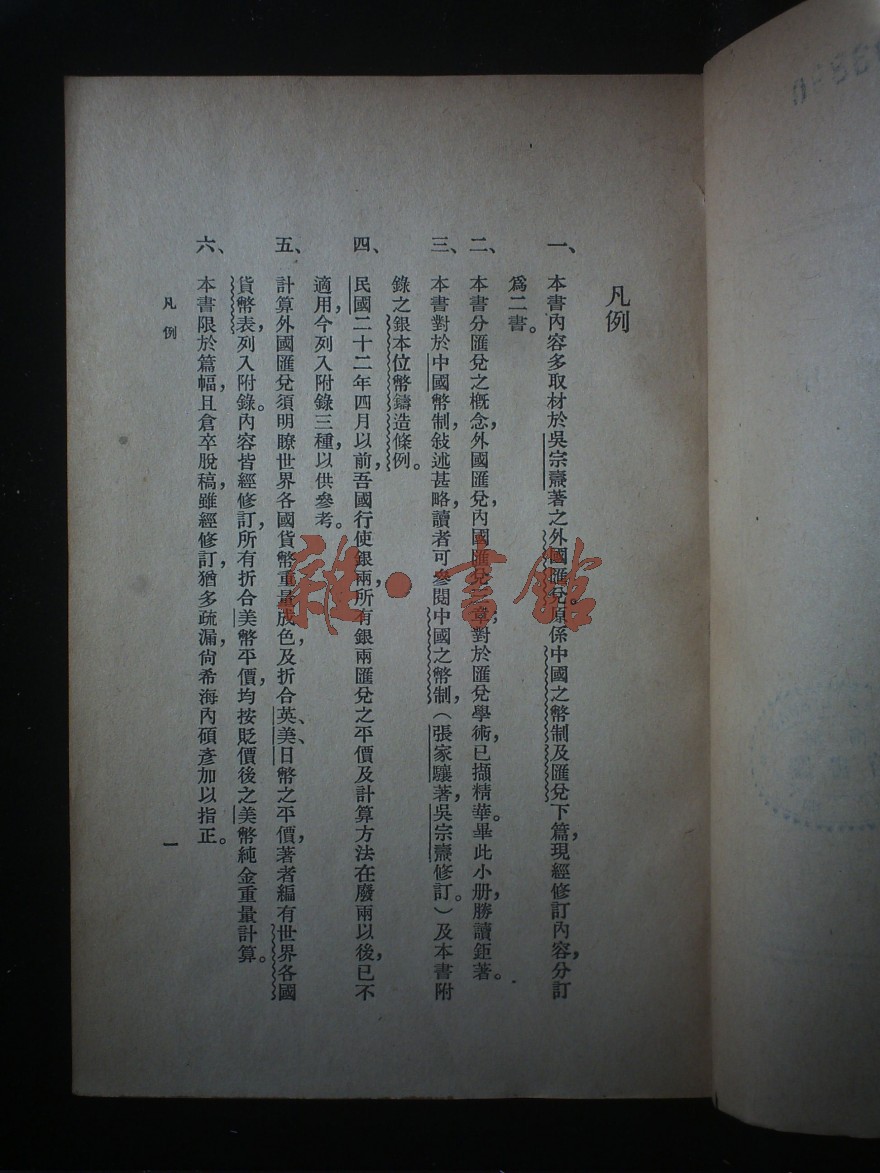 凡例
一、本書內容多取材於吳宗燾著之外國匯兌。原係中國之幣制及匯兌下篇,現經修訂內容,分訂
爲二書。
二、本書分匯兌之概念,外國匯兌,內國匯兌三章;對於匯兌學術,已擷精華。畢此小册,勝讀鉅著。
三、本書對於中國幣制,敍述甚略,讀者可參閱中國之幣制,(張家驤著,吳宗燾修訂。)及本書附
錄之銀本位幣鑄造條例。
四、民國二十二年四月以前,吾國行使銀兩,所有銀兩匯兌之平價及計算方法在廢兩以後,已不
適用,今列入附錄三種,以供參考。
五、計算外國匯兌須明瞭世界各國貨幣重量成色,及折合英、美、日幣之平價,著者編有世界各國
貨幣表,列入附錄。內容皆經修訂,所有折合美幣平價,均按貶價後之美幣純金重量計算。
六、本書限於篇幅,且倉卒脫稿,雖經修訂,猶多疏漏,尙希海內碩彥加以指正。
凡例
一
雜·書館